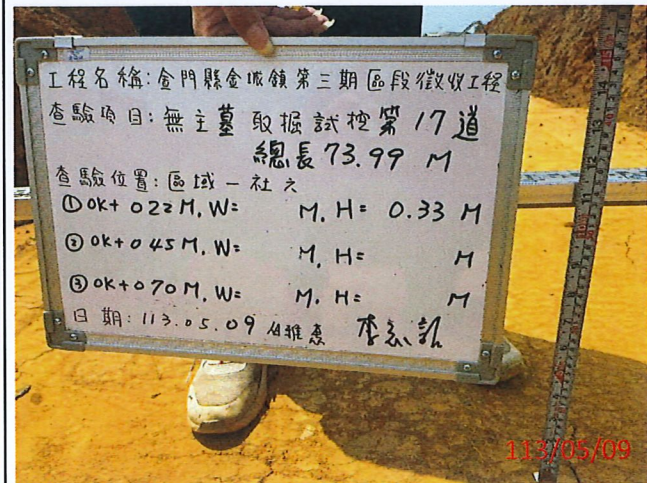 工程名稱:金門縣金城鎮第三期區段徵收工程
查驗項目:無主墓取掘試挖第17道
總長73.99 M
查驗位置:區域一社六
①0K+022M, W= M, H= 0.33 M
②0K+045M, W= M, H= M
③0K+070M, W= M, H= M
日期:113.05.09
113/05/09